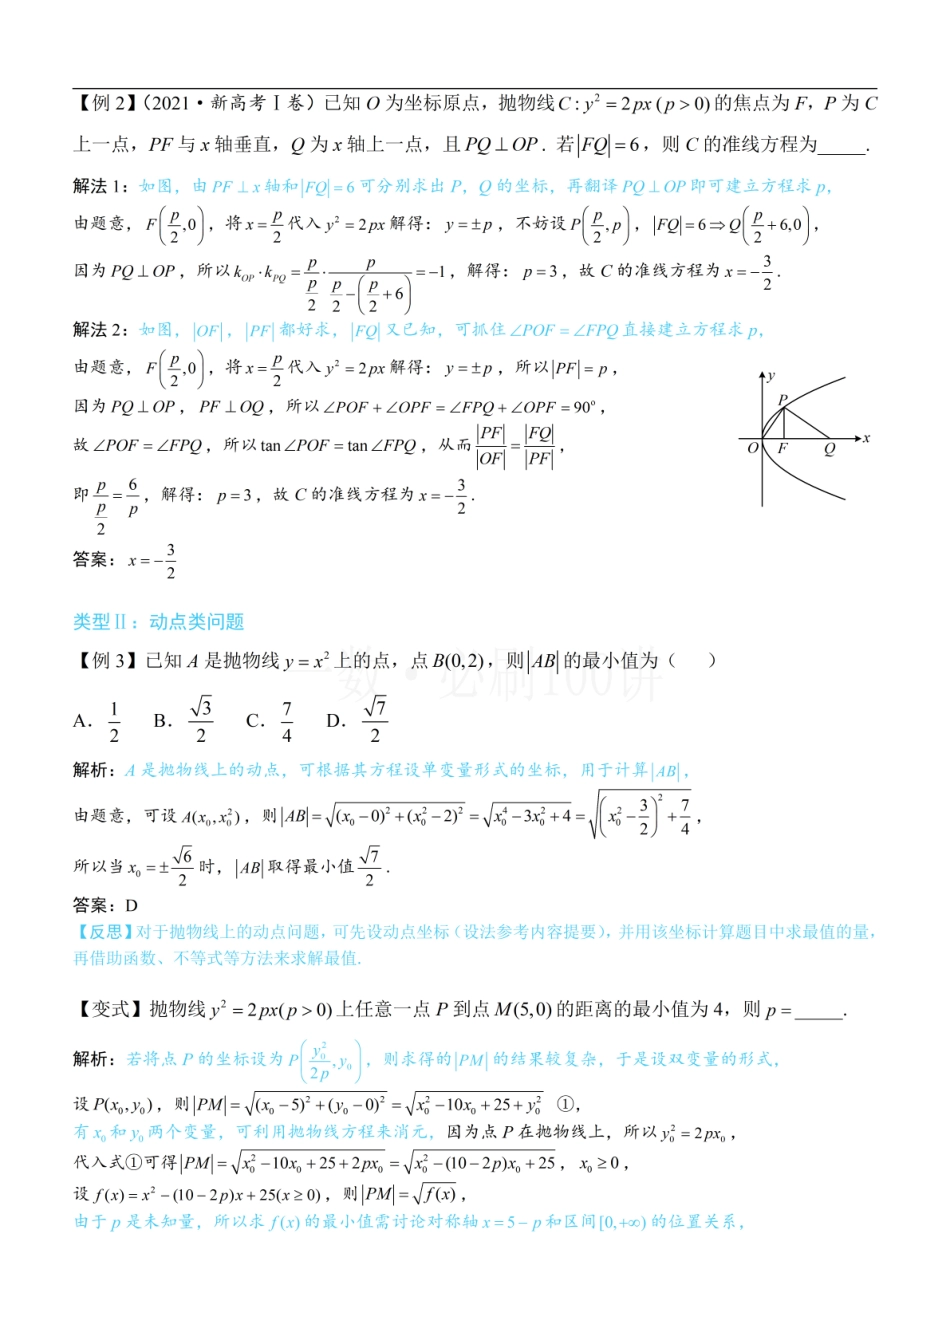 【例 2】（2021·新高考Ⅰ卷）已知 O 为坐标原点，抛物线 $C: y^2 = 2px\,(p>0)$ 的焦点为 F，P 为 C
上一点，PF 与 x 轴垂直，Q 为 x 轴上一点，且 $PQ \perp OP$．若 $|FQ| = 6$，则 C 的准线方程为_____.
解法 1：如图，由 $PF \perp x$ 轴和 $|FQ| = 6$ 可分别求出 P，Q 的坐标，再翻译 $PQ \perp OP$ 即可建立方程求 p，
由题意，$F\left(\frac{p}{2},0\right)$，将 $x=\frac{p}{2}$ 代入 $y^2=2px$ 解得：$y=\pm p$，不妨设 $P\left(\frac{p}{2},p\right)$，$|FQ|=6 \Rightarrow Q\left(\frac{p}{2}+6,0\right)$，
因为 $PQ \perp OP$，所以 $k_{OP} \cdot k_{PQ} = \frac{p}{\frac{p}{2}} \cdot \frac{p}{\frac{p}{2}-\left(\frac{p}{2}+6\right)} = -1$，解得：$p=3$，故 C 的准线方程为 $x=-\frac{3}{2}$．
解法 2：如图，$|OF|$，$|PF|$ 都好求，$|FQ|$ 又已知，可抓住 $\angle POF = \angle FPQ$ 直接建立方程求 p，
由题意，$F\left(\frac{p}{2},0\right)$，将 $x=\frac{p}{2}$ 代入 $y^2=2px$ 解得：$y=\pm p$，所以 $|PF|=p$，
因为 $PQ \perp OP$，$PF \perp OQ$，所以 $\angle POF+\angle OPF=\angle FPQ+\angle OPF=90^{\mathrm{o}}$，
故 $\angle POF=\angle FPQ$，所以 $\tan\angle POF=\tan\angle FPQ$，从而 $\frac{|PF|}{|OF|}=\frac{|FQ|}{|PF|}$，
即 $\frac{p}{\frac{p}{2}}=\frac{6}{p}$，解得：$p=3$，故 C 的准线方程为 $x=-\frac{3}{2}$．
y
P
O F Q x
答案：$x=-\frac{3}{2}$
类型Ⅱ：动点类问题
【例 3】已知 A 是抛物线 $y=x^2$ 上的点，点 $B(0,2)$，则 $|AB|$ 的最小值为（  ）
A．$\frac{1}{2}$ B．$\frac{\sqrt{3}}{2}$ C．$\frac{7}{4}$ D．$\frac{\sqrt{7}}{2}$
解析：A 是抛物线上的动点，可根据其方程设单变量形式的坐标，用于计算 $|AB|$，
由题意，可设 $A(x_0,x_0^2)$，则 $|AB|=\sqrt{(x_0-0)^2+(x_0^2-2)^2}=\sqrt{x_0^4-3x_0^2+4}=\sqrt{\left(x_0^2-\frac{3}{2}\right)^2+\frac{7}{4}}$，
所以当 $x_0=\pm\frac{\sqrt{6}}{2}$ 时，$|AB|$ 取得最小值 $\frac{\sqrt{7}}{2}$．
答案：D
【反思】对于抛物线上的动点问题，可先设动点坐标（设法参考内容提要），并用该坐标计算题目中求最值的量，
再借助函数、不等式等方法来求解最值.
【变式】抛物线 $y^2=2px(p>0)$ 上任意一点 P 到点 $M(5,0)$ 的距离的最小值为 4，则 $p=$_____.
解析：若将点 P 的坐标设为 $P\left(\frac{y_0^2}{2p},y_0\right)$，则求得的 $|PM|$ 的结果较复杂，于是设双变量的形式，
设 $P(x_0,y_0)$，则 $|PM|=\sqrt{(x_0-5)^2+(y_0-0)^2}=\sqrt{x_0^2-10x_0+25+y_0^2}$ ①，
有 $x_0$ 和 $y_0$ 两个变量，可利用抛物线方程来消元，因为点 P 在抛物线上，所以 $y_0^2=2px_0$，
代入式①可得 $|PM|=\sqrt{x_0^2-10x_0+25+2px_0}=\sqrt{x_0^2-(10-2p)x_0+25}$，$x_0 \geq 0$，
设 $f(x)=x^2-(10-2p)x+25(x \geq 0)$，则 $|PM|=\sqrt{f(x)}$，
由于 p 是未知量，所以求 $f(x)$ 的最小值需讨论对称轴 $x=5-p$ 和区间 $[0,+\infty)$ 的位置关系，
一数·必刷100讲